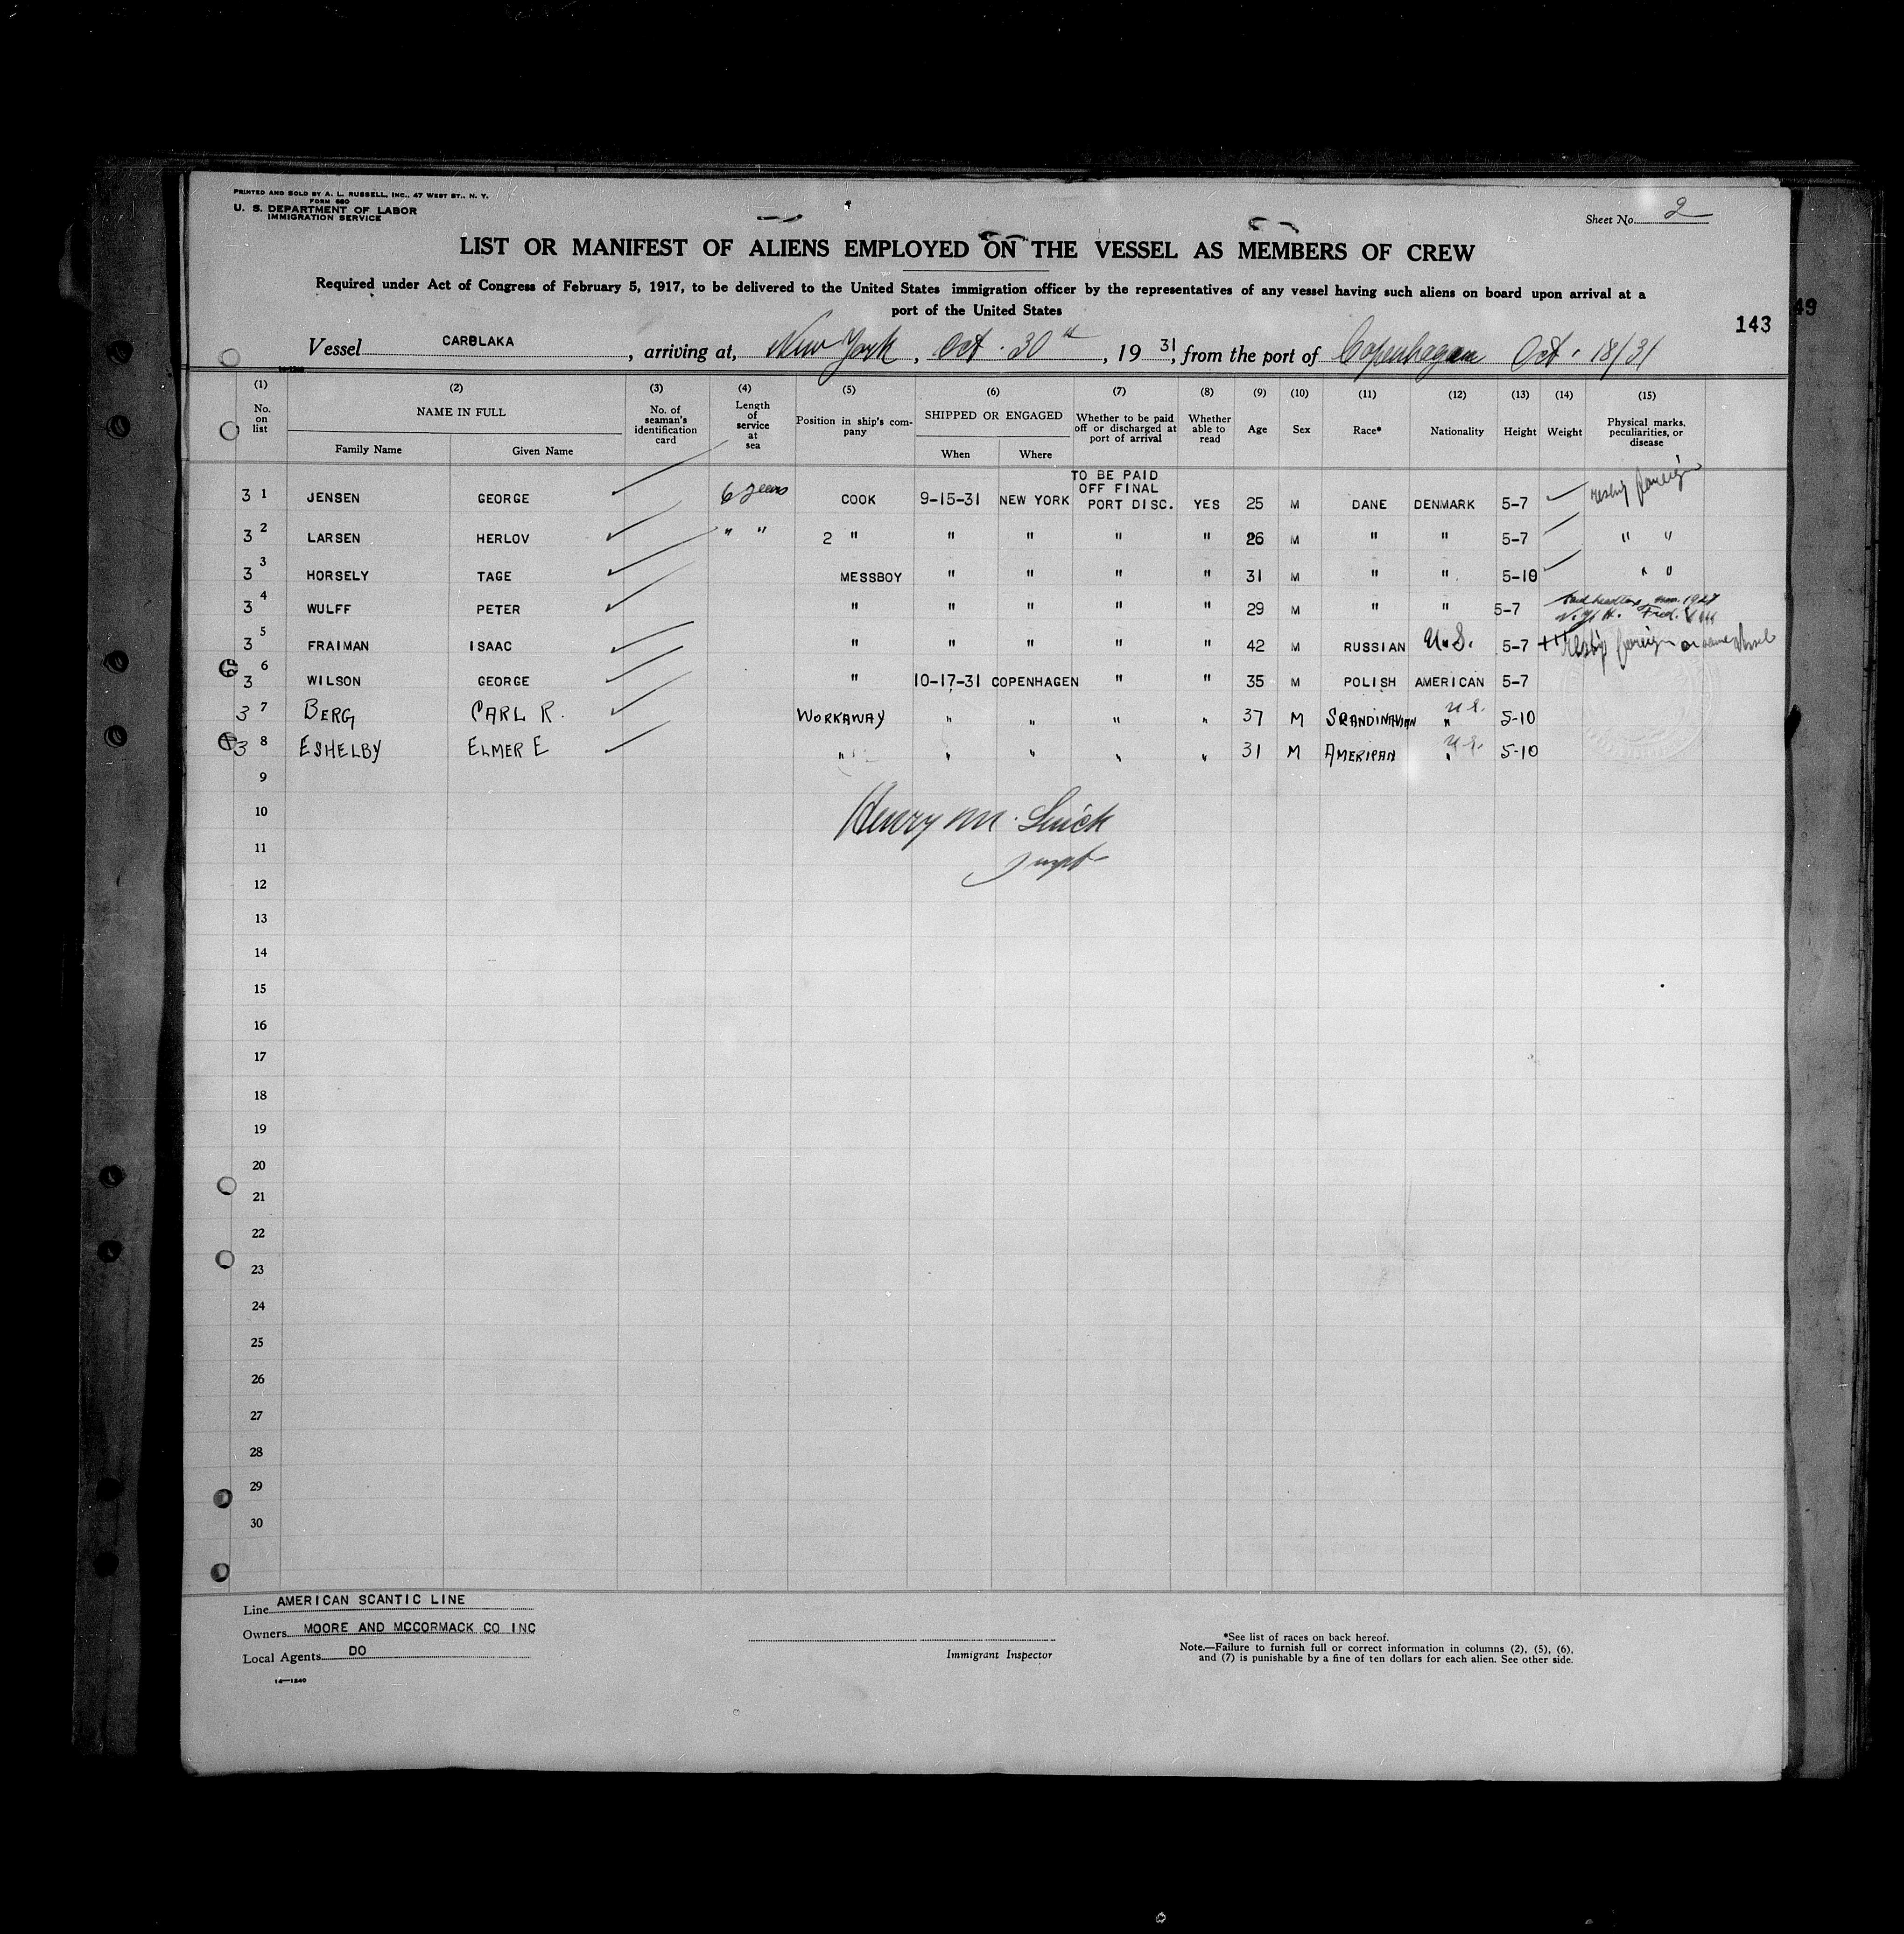 PRINTED AND SOLD BY A. L. RUSSELL, INC., 47 WEST ST., N. Y.
FORM 680
U. S. DEPARTMENT OF LABOR
IMMIGRATION SERVICE
Sheet No. 2
LIST OR MANIFEST OF ALIENS EMPLOYED ON THE VESSEL AS MEMBERS OF CREW
Required under Act of Congress of February 5, 1917, to be delivered to the United States immigration officer by the representatives of any vessel having such aliens on board upon arrival at a
port of the United States
49
143
Vessel CARBLAKA, arriving at, New York, Oct. 30th, 1931, from the port of Copenhagen Oct. 18/31
(1) No. on list
(2) NAME IN FULL Family Name Given Name
(3) No. of seaman's identification card
(4) Length of service at sea
(5) Position in ship's company
(6) SHIPPED OR ENGAGED When Where
(7) Whether to be paid off or discharged at port of arrival
(8) Whether able to read
(9) Age
(10) Sex
(11) Race*
(12) Nationality
(13) Height
(14) Weight
(15) Physical marks, peculiarities, or disease
3 1 JENSEN GEORGE 6 years COOK 9-15-31 NEW YORK TO BE PAID OFF FINAL PORT DISC. YES 25 M DANE DENMARK 5-7 foreign
3 2 LARSEN HERLOV " " 2 " " " " " 26 M " " 5-7 " "
3 3 HORSELY TAGE MESSBOY " " " " 31 M " " 5-10 " "
3 4 WULFF PETER " " " " " 29 M " " 5-7
3 5 FRAIMAN ISAAC " " " " " 42 M RUSSIAN U.S. 5-7 foreign
3 6 WILSON GEORGE " 10-17-31 COPENHAGEN " " 35 M POLISH AMERICAN 5-7
3 7 BERG CARL R. WORKAWAY " " " " 37 M SCANDINAVIAN " U.S. 5-10
3 8 ESHELBY ELMER E " " " " " 31 M AMERICAN " U.S. 5-10
9
10
Henry M.
11
12
13
14
15
16
17
18
19
20
21
22
23
24
25
26
27
28
29
30
Line AMERICAN SCANTIC LINE
Owners MOORE AND MCCORMACK CO INC
Local Agents DO
14-1240
Immigrant Inspector
*See list of races on back hereof.
Note.—Failure to furnish full or correct information in columns (2), (5), (6),
and (7) is punishable by a fine of ten dollars for each alien. See other side.